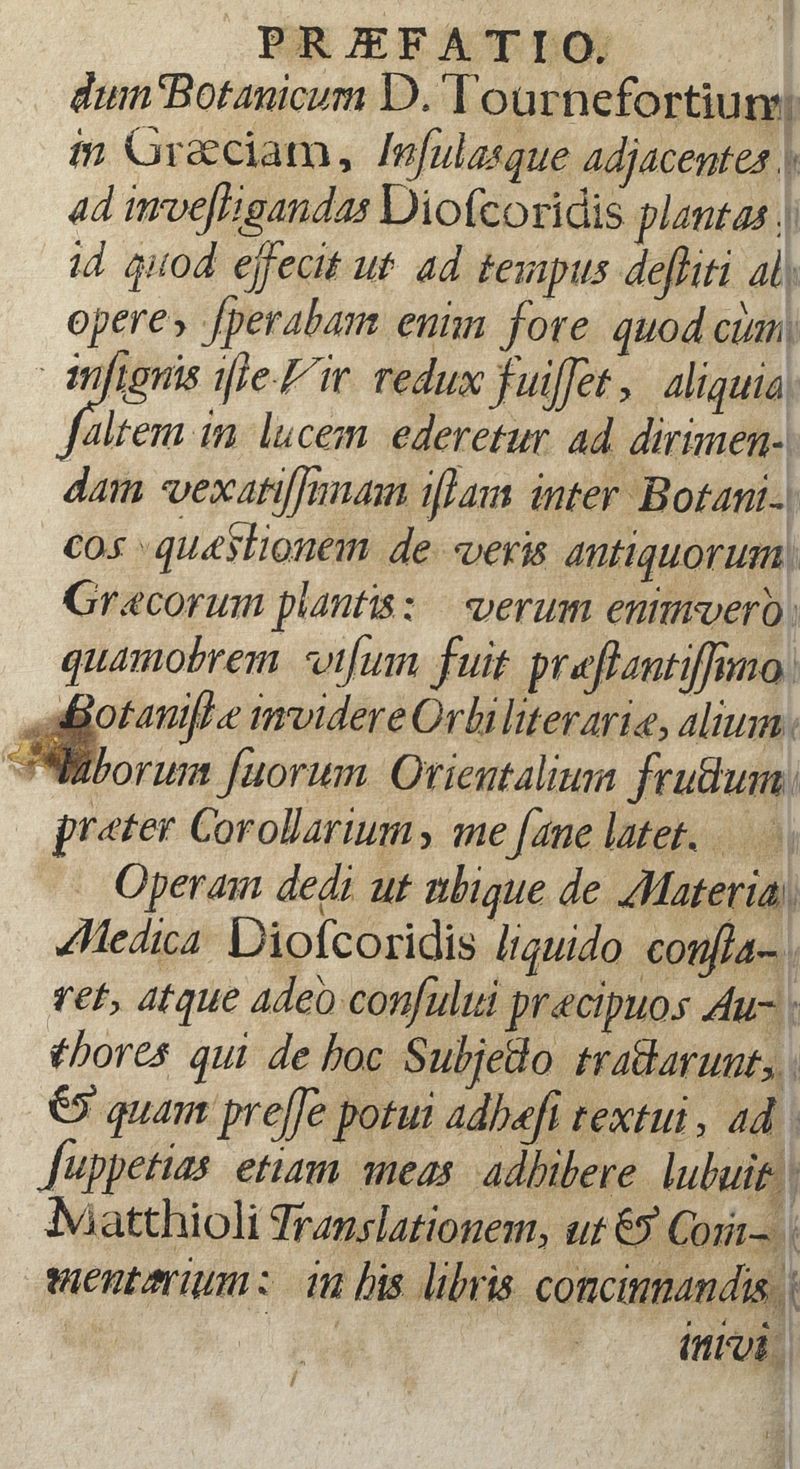 PRÆFATIO.
dum Botanicum D. Tournefortium
in Græciam, Inſulasque adjacentes
ad inveſtigandas Dioſcoridis plantas
id quod effecit ut ad tempus deſtiti ab
opere, ſperabam enim fore quod cùm
inſignis iſte Vir redux fuiſſet, aliquid
ſaltem in lucem ederetur ad dirimen-
dam vexatiſſimam iſtam inter Botani-
cos quæſtionem de veris antiquorum
Græcorum plantis: verum enimverò
quamobrem viſum fuit præſtantiſſimo
Botaniſtæ invidere Orbi literariæ, alium
laborum ſuorum Orientalium fructum
præter Corollarium, me ſane latet.
Operam dedi ut ubique de Materia
Medica Dioſcoridis liquido conſta-
ret, atque adeò conſului præcipuos Au-
thores qui de hoc Subjecto tractarunt,
& quam preſſe potui adhæſi textui, ad
ſuppetias etiam meas adhibere lubuit
Matthioli Translationem, ut & Com-
mentarium: in his libris concinnandis
inivi